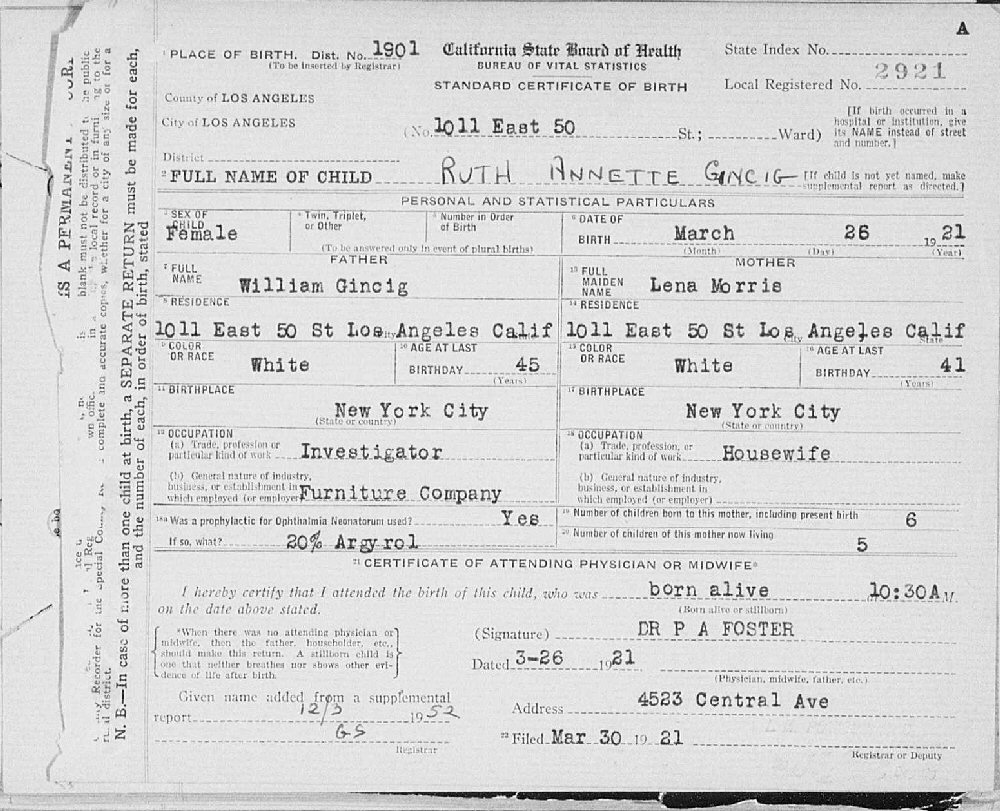 A
PLACE OF BIRTH. Dist. No. 1901
(To be inserted by Registrar)
California State Board of Health
BUREAU OF VITAL STATISTICS
STANDARD CERTIFICATE OF BIRTH
State Index No.
Local Registered No. 2921
County of LOS ANGELES
City of LOS ANGELES
(No. 1011 East 50 St.; Ward)
[If birth occurred in a
hospital or institution, give
its NAME instead of street
and number.]
District
2 FULL NAME OF CHILD RUTH ANNETTE GINCIG
[If child is not yet named, make
supplemental report as directed.]
PERSONAL AND STATISTICAL PARTICULARS
3 SEX OF
CHILD
Female
4 Twin, Triplet,
or Other
5 Number in Order
of Birth
(To be answered only in event of plural births)
6 DATE OF
BIRTH March 26 1921
(Month) (Day) (Year)
FATHER
7 FULL
NAME
William Gincig
8 RESIDENCE
1011 East 50 St Los Angeles Calif
9 COLOR
OR RACE
White
10 AGE AT LAST
BIRTHDAY 45
(Years)
11 BIRTHPLACE
New York City
(State or country)
12 OCCUPATION
(a) Trade, profession or
particular kind of work Investigator
(b) General nature of industry,
business, or establishment in
which employed (or employer) Furniture Company
MOTHER
13 FULL
MAIDEN
NAME
Lena Morris
14 RESIDENCE
1011 East 50 St Los Angeles Calif
City State
15 COLOR
OR RACE
White
16 AGE AT LAST
BIRTHDAY 41
(Years)
17 BIRTHPLACE
New York City
(State or country)
18 OCCUPATION
(a) Trade, profession, or
particular kind of work Housewife
(b) General nature of industry,
business, or establishment in
which employed (or employer)
18a Was a prophylactic for Ophthalmia Neonatorum used? Yes
If so, what? 20% Argyrol
19 Number of children born to this mother, including present birth 6
20 Number of children of this mother now living 5
21 CERTIFICATE OF ATTENDING PHYSICIAN OR MIDWIFE*
I hereby certify that I attended the birth of this child, who was born alive 10:30A M.
on the date above stated.
(Born alive or stillborn)
*When there was no attending physician or
midwife, then the father, householder, etc.,
should make this return. A stillborn child is
one that neither breathes nor shows other evi-
dence of life after birth.
(Signature) DR P A FOSTER
Dated 3-26 1921
(Physician, midwife, father, etc.)
Given name added from a supplemental
report 12/3 1952
GS
Registrar
Address 4523 Central Ave
22 Filed Mar 30 19 21
Registrar or Deputy
N. B.—In case of more than one child at birth, a SEPARATE RETURN must be made for each,
and the number of each, in order of birth, stated
IS A PERMANENT
blank must not be distributed
local record or in
complete and accurate copies, whether for a city of any size or for a
Recorder for the special County
district.